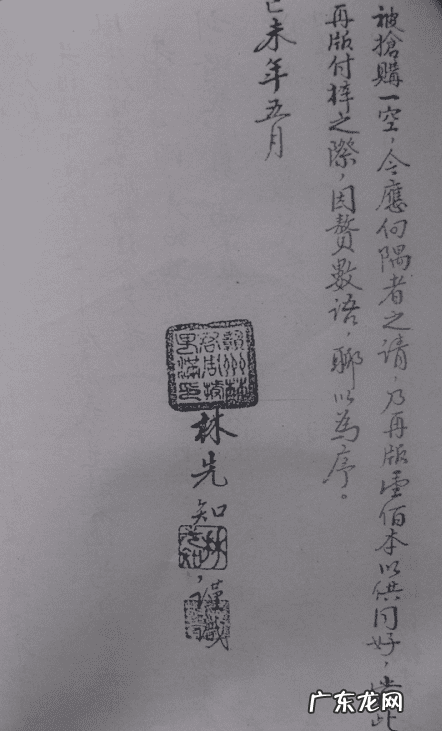 被搶購一空，今應向隅者之請，乃再版壹佰本以供同好，此
再版付梓之際，因贅數語，聊以為序。
己未年五月
林先知，謹識
广东龙网